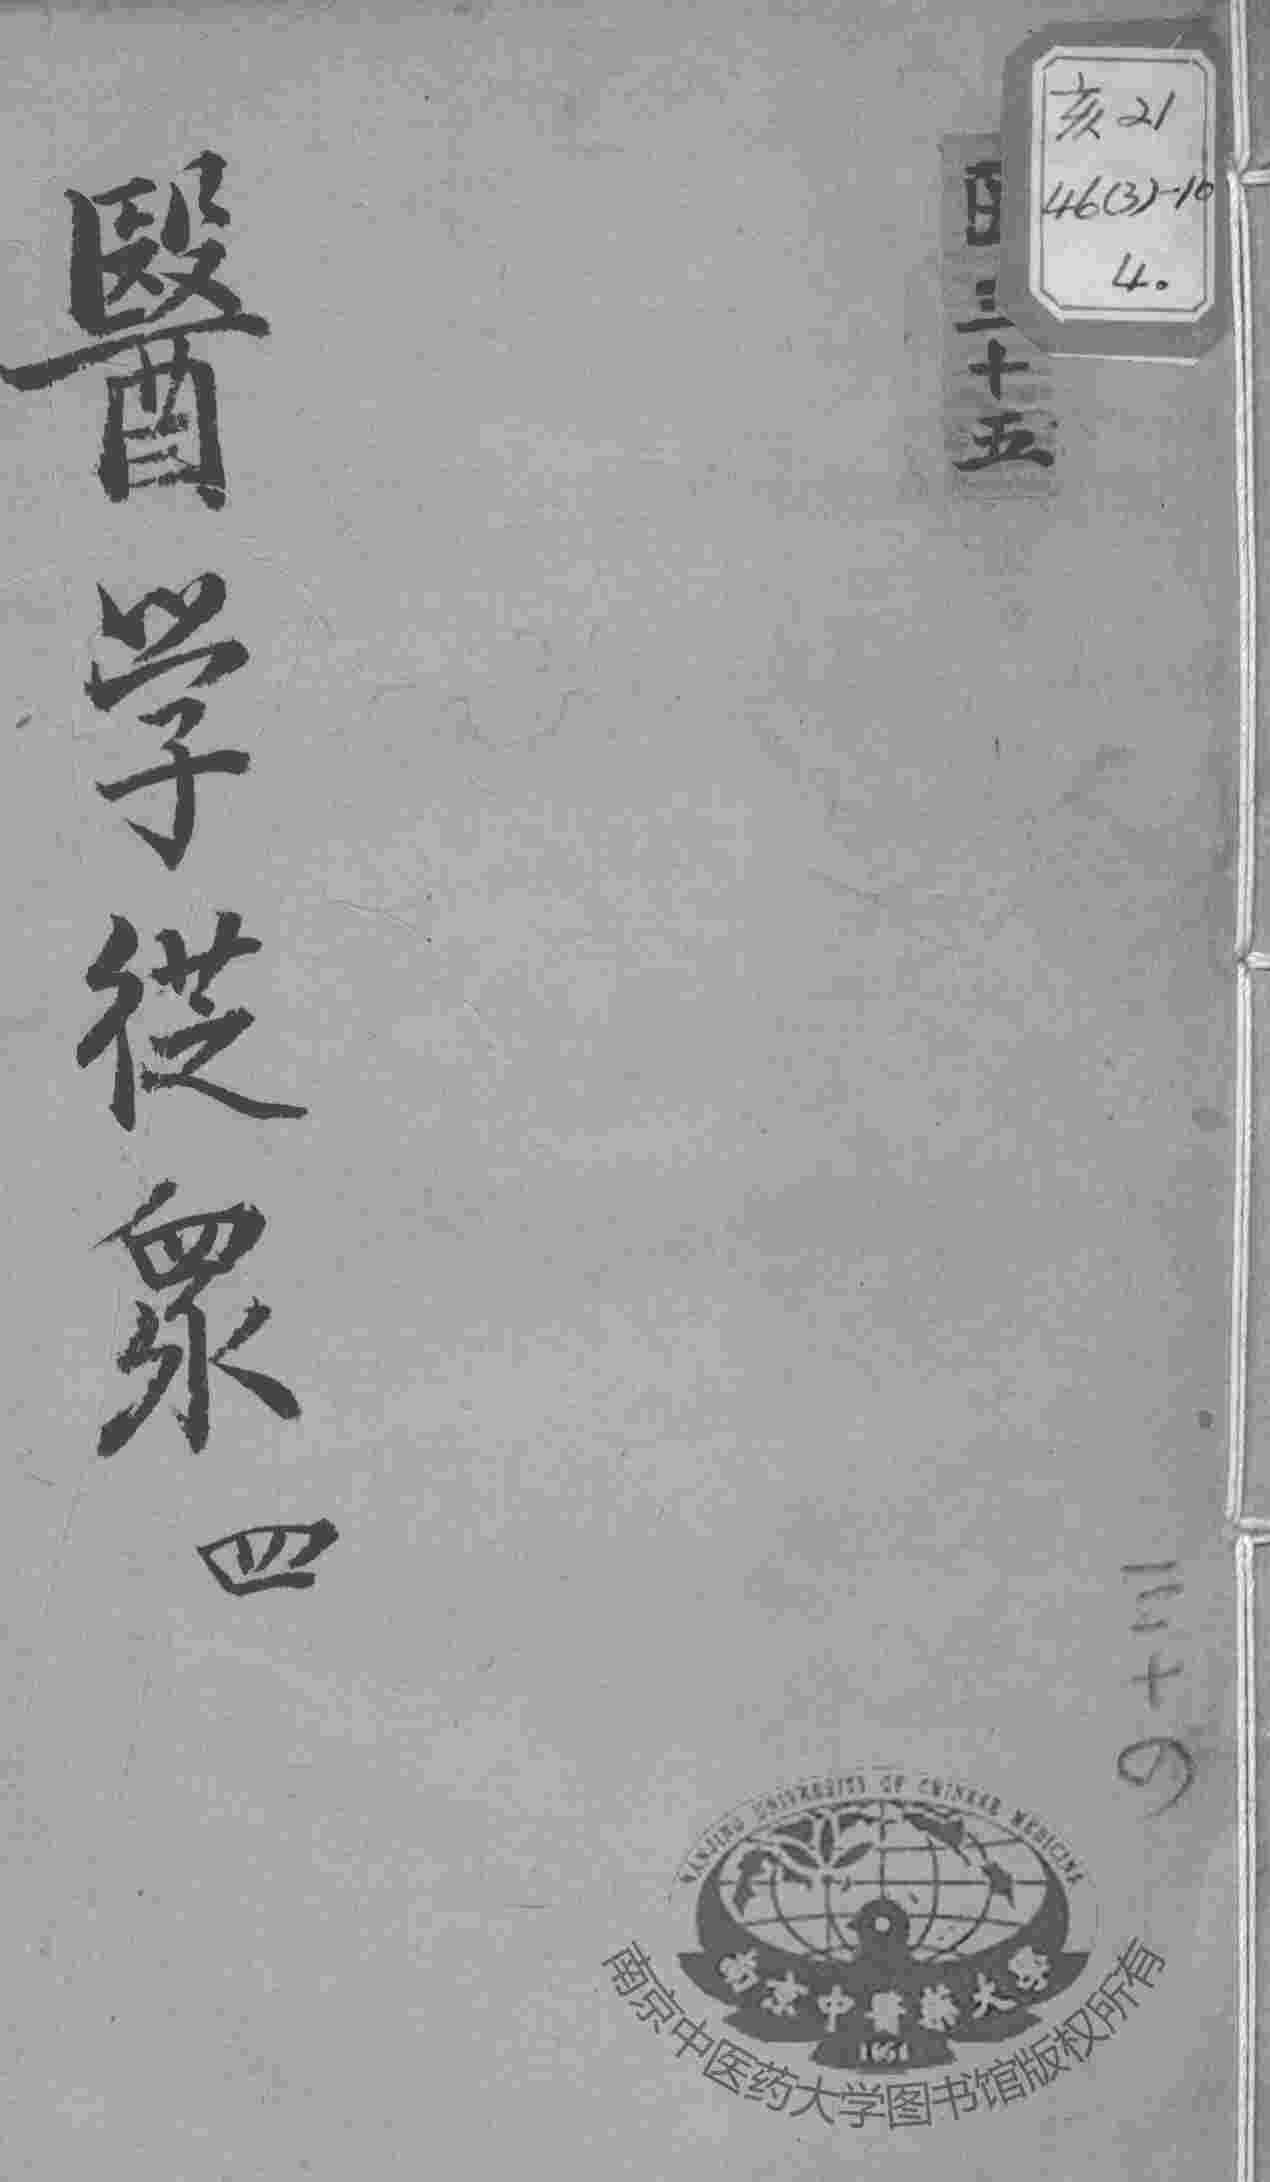 亥21
46(3)-10
4.
三十五
醫学從眾 四
三十四
NANJING UNIVERSITY OF CHINESE MEDICINE
南京中醫藥大學
南京中医药大学图书馆版权所有